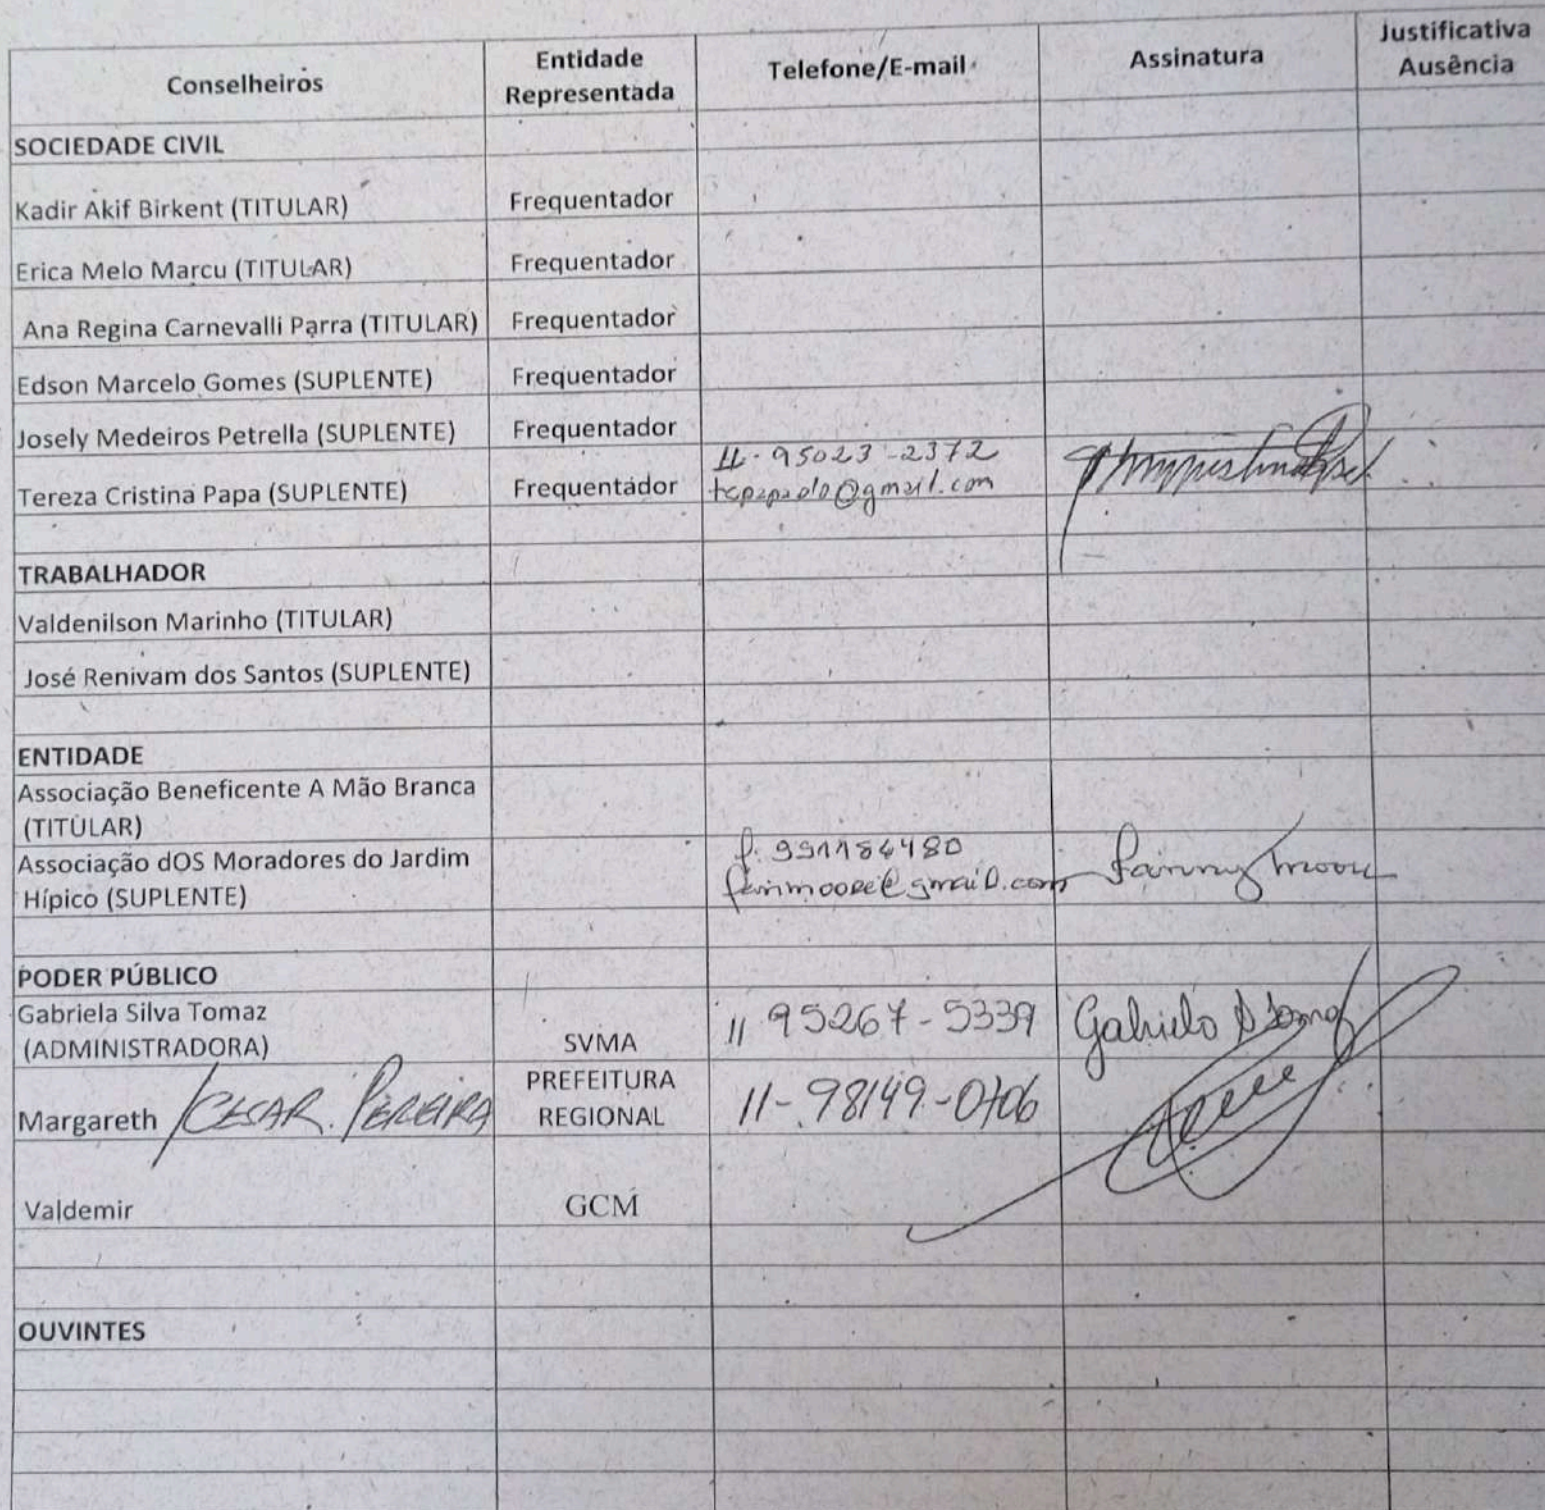 Conselheiros
Entidade
Representada
Telefone/E-mail
Assinatura
Justificativa
Ausência
SOCIEDADE CIVIL
Kadir Akif Birkent (TITULAR) Frequentador
Erica Melo Marcu (TITULAR) Frequentador
Ana Regina Carnevalli Parra (TITULAR) Frequentador
Edson Marcelo Gomes (SUPLENTE) Frequentador
Josely Medeiros Petrella (SUPLENTE) Frequentador
11-95023-2372
Tereza Cristina Papa (SUPLENTE) Frequentador
TRABALHADOR
Valdenilson Marinho (TITULAR)
José Renivam dos Santos (SUPLENTE)
ENTIDADE
Associação Beneficente A Mão Branca
(TITULAR)
Associação dOS Moradores do Jardim
Hípico (SUPLENTE)
f. 991184480
Fanny Moore
PODER PÚBLICO
Gabriela Silva Tomaz
(ADMINISTRADORA)
SVMA
11 95267-5339
Margareth / CESAR. PEREIRA
PREFEITURA
REGIONAL
11-98149-0706
Valdemir GCM
OUVINTES